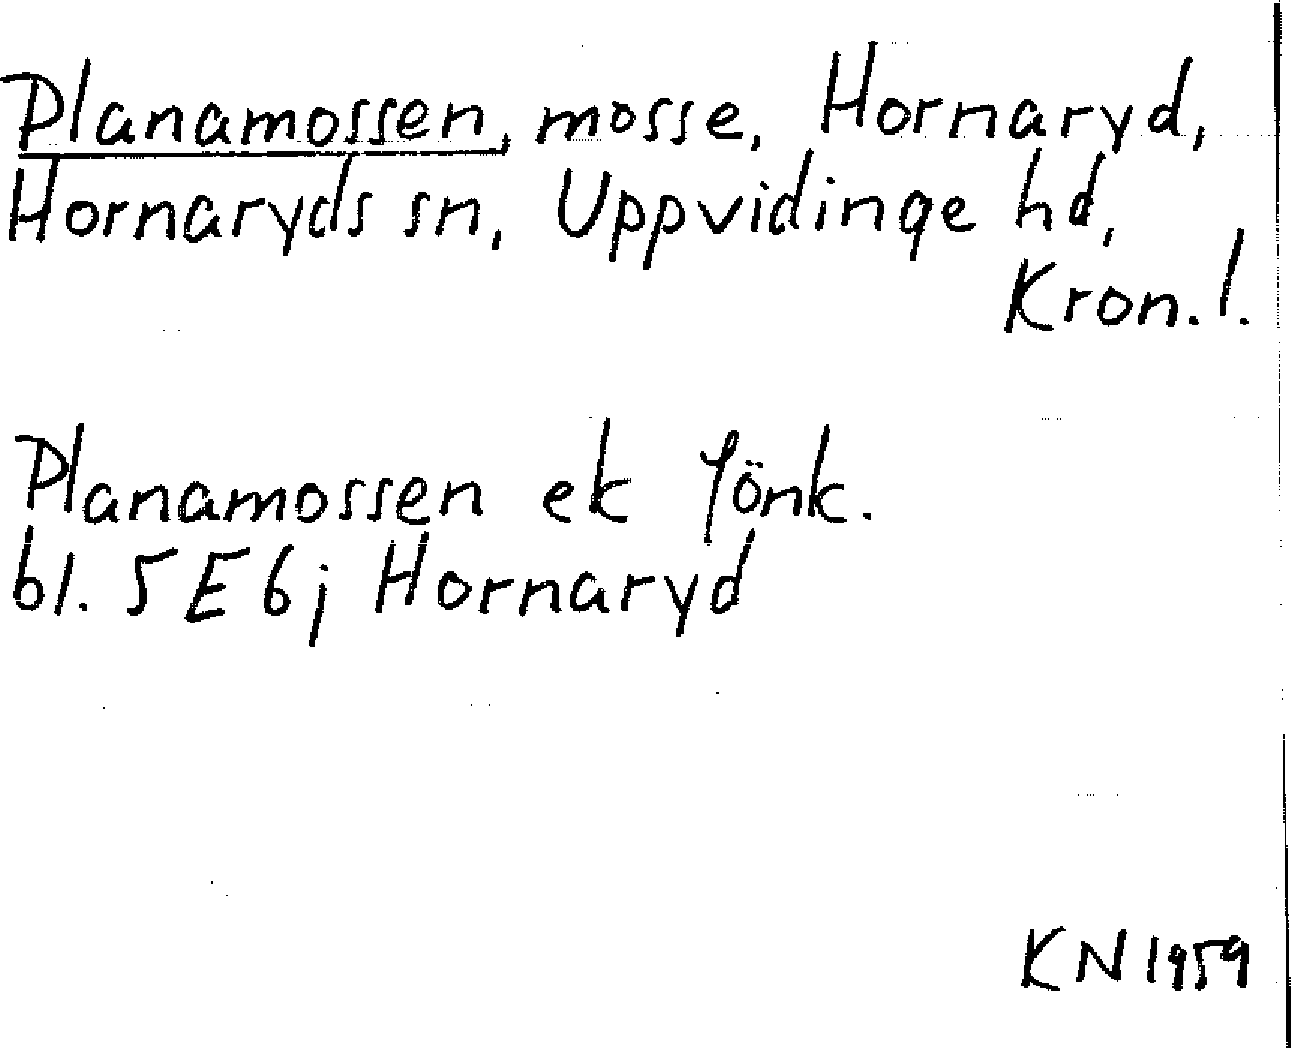 Planamossen, mosse, Hornaryd,
Hornaryds sn, Uppvidinge hd,
Kron. l.
Planamossen ek Jönk.
bl. 5E6j Hornaryd
KN 1959